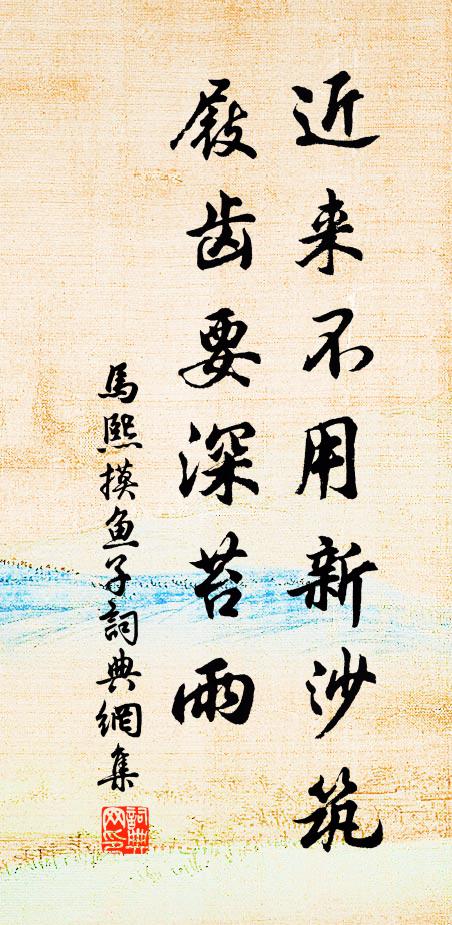 近来不用新沙筑
屐齿要深苔雨
馬熙摸魚子詞典網集
詞典网印